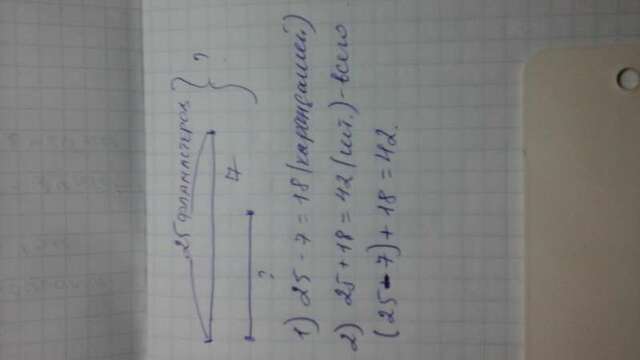 25 фламастеров } ?
7
?
1) 25 - 7 = 18 (карандашей)
2) 25 + 18 = 42 (шт.) - всего
(25 - 7) + 18 = 42.